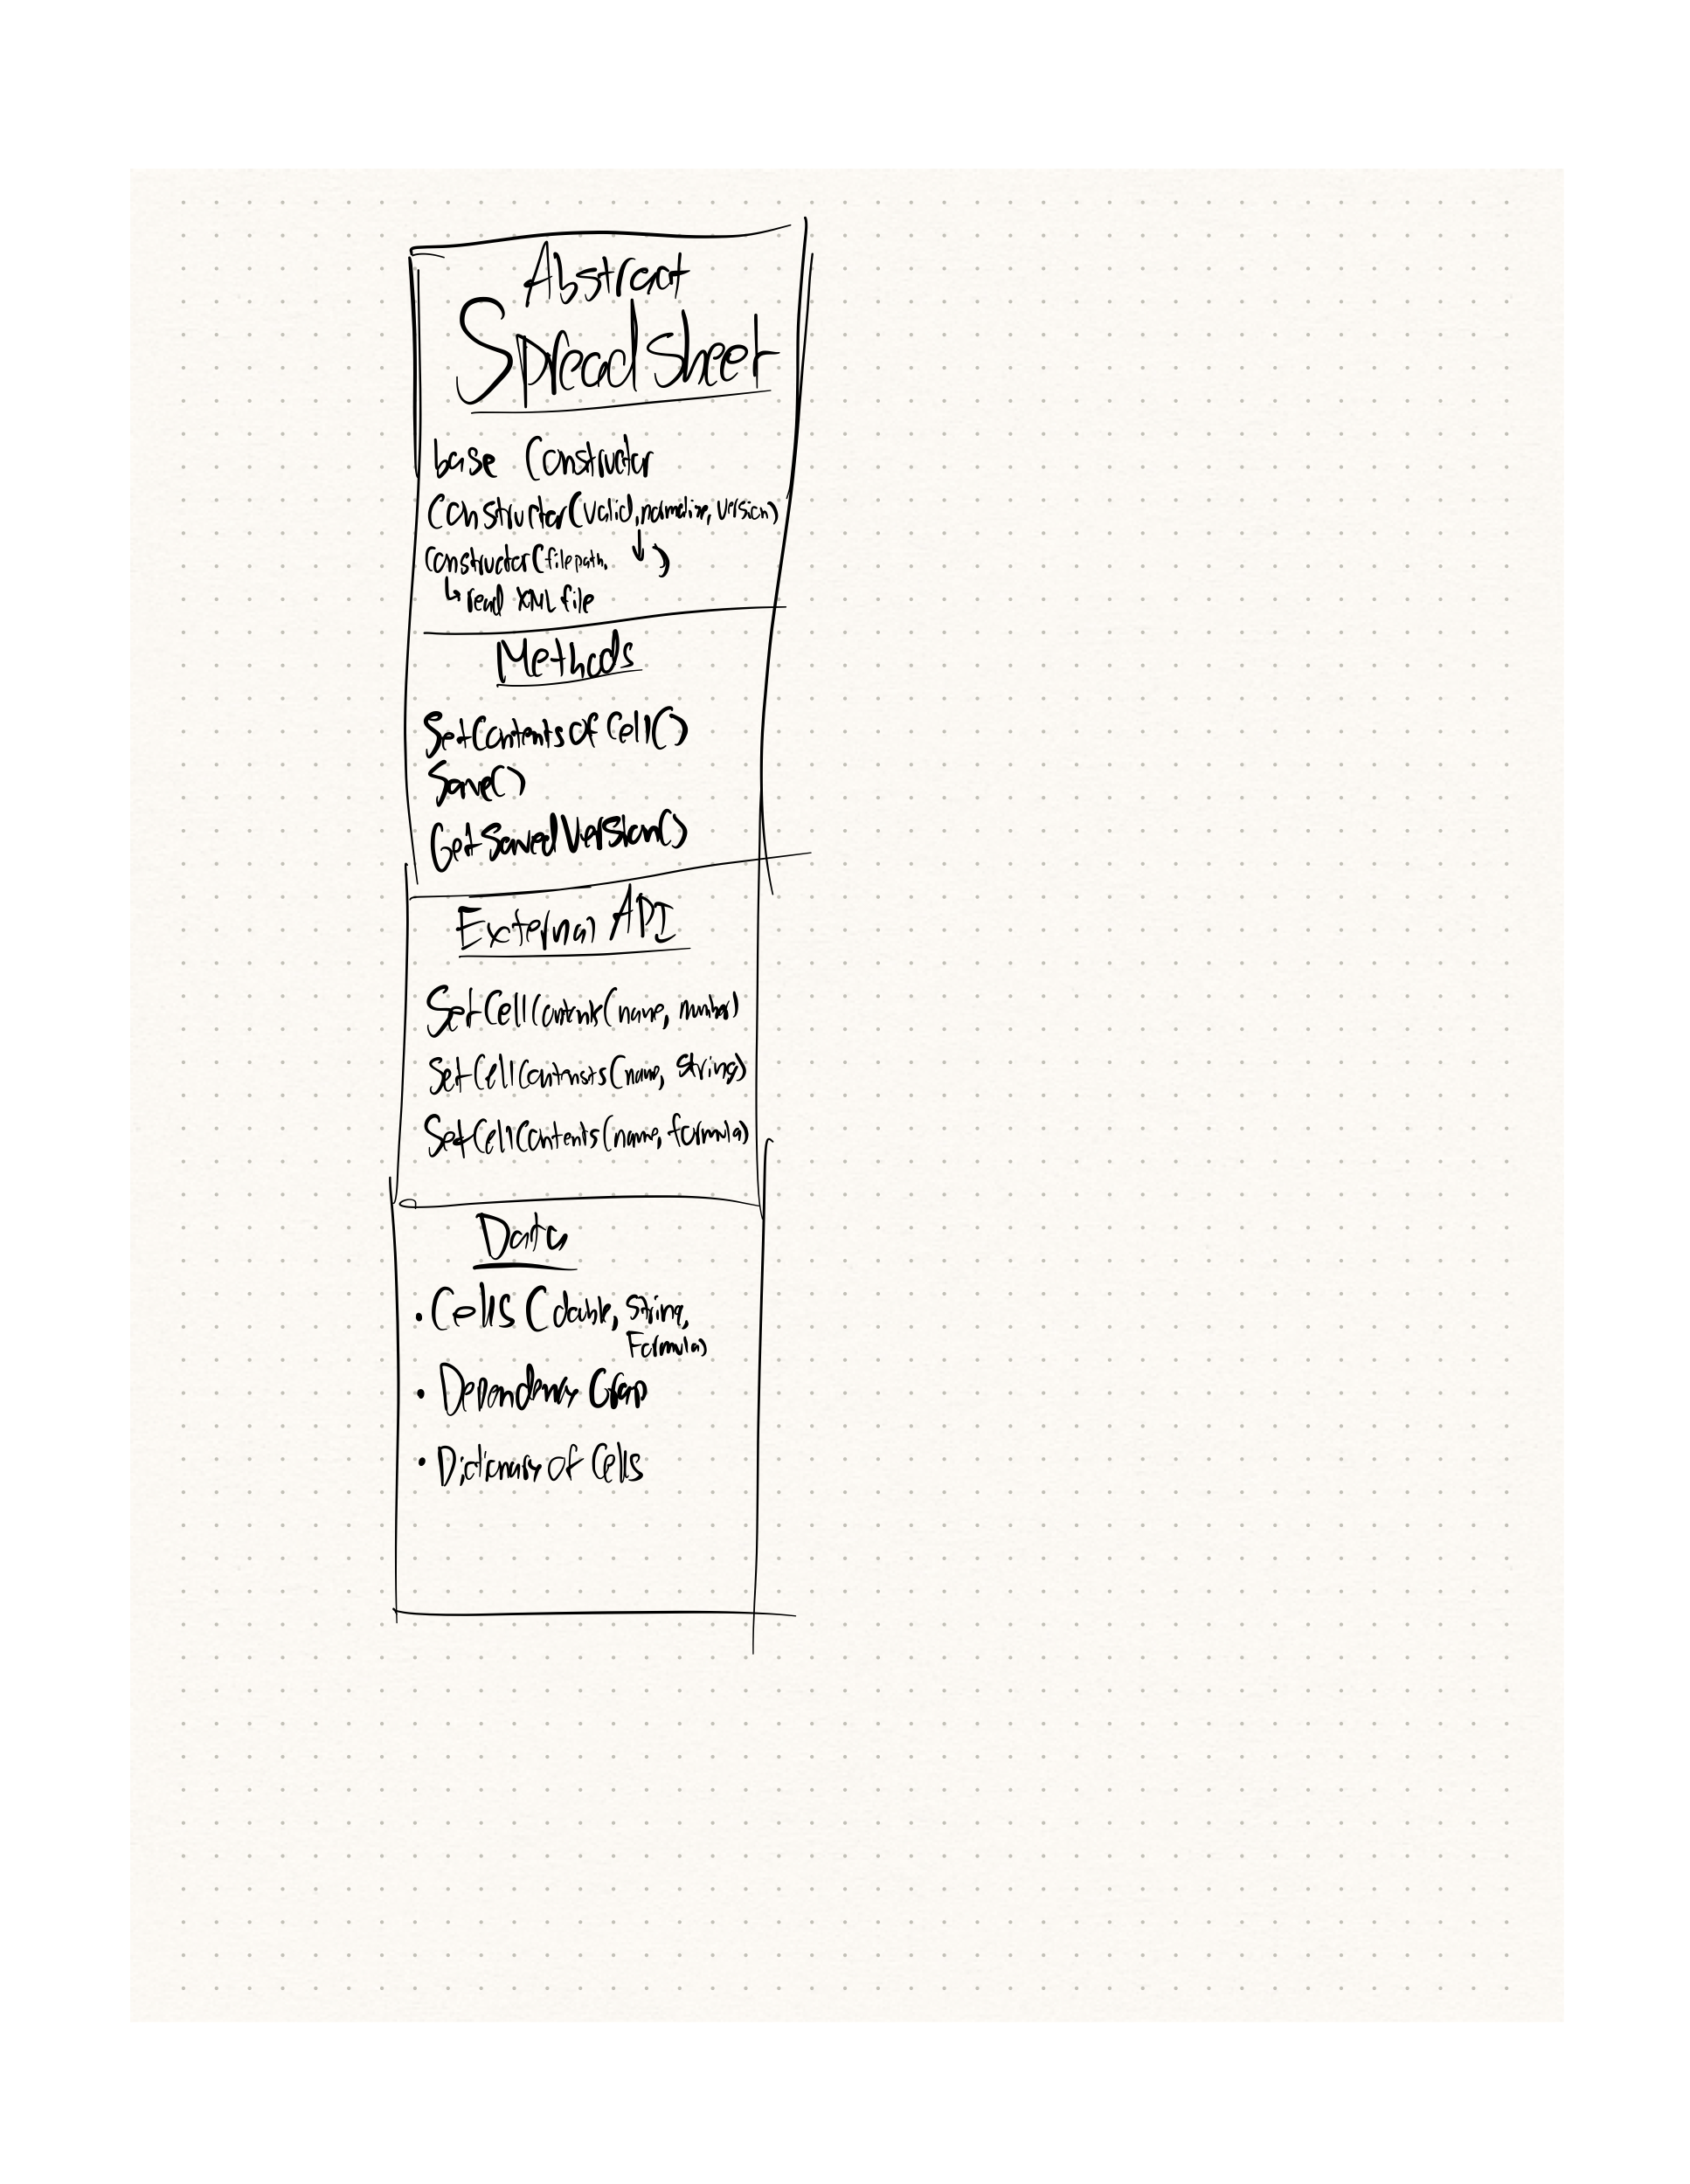 Abstract
Spreadsheet
base Constructor
Constructor(valid, normalize, version)
Constructor(filepath, ↓)
↳ read XML file
Methods
SetContentsOfCell()
Save()
GetSavedVersion()
External API
SetCellContents(name, number)
SetCellContensts(name, string)
SetCellContents(name, formula)
Data
• Cells (double, String,
Formula)
• Dependency Grap
• Dictionary of Cells